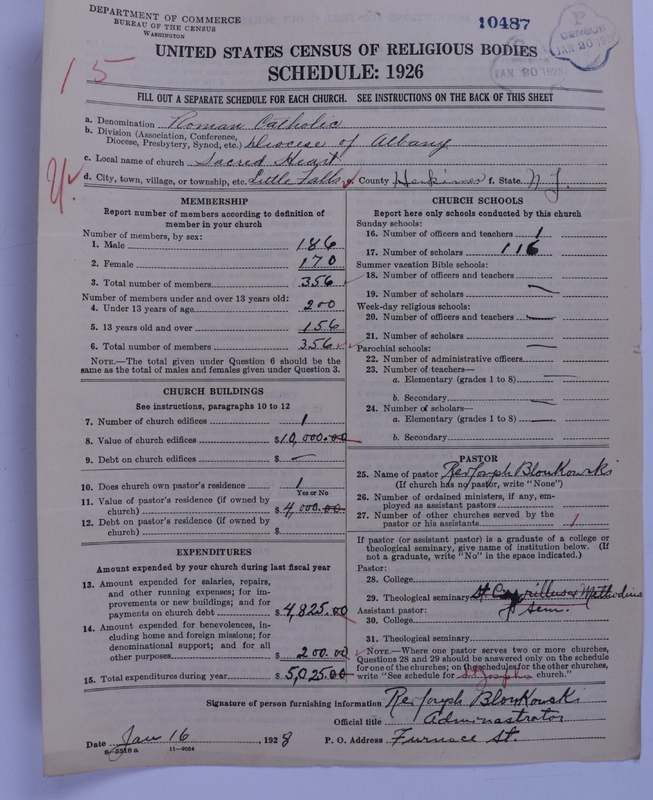 DEPARTMENT OF COMMERCE
BUREAU OF THE CENSUS
WASHINGTON
10487
P
CENSUS
JAN 20 1928
JAN 20 1928
15
UNITED STATES CENSUS OF RELIGIOUS BODIES
SCHEDULE: 1926
FILL OUT A SEPARATE SCHEDULE FOR EACH CHURCH. SEE INSTRUCTIONS ON THE BACK OF THIS SHEET
a. Denomination Roman Catholic
b. Division (Association, Conference, Diocese, Presbytery, Synod, etc.) Diocese of Albany
c. Local name of church Sacred Heart
d. City, town, village, or township, etc. Little Falls e. County Herkimer f. State N.Y.
U.
MEMBERSHIP
Report number of members according to definition of
member in your church
Number of members, by sex:
1. Male 186
2. Female 170
3. Total number of members 356
Number of members under and over 13 years old:
4. Under 13 years of age 200
5. 13 years old and over 156
6. Total number of members 356
NOTE.—The total given under Question 6 should be
same as the total of males and females given under Question 3.
CHURCH BUILDINGS
See instructions, paragraphs 10 to 12
7. Number of church edifices 1
8. Value of church edifices $10,000.00
9. Debt on church edifices $ —
10. Does church own pastor's residence 1
Yes or No
11. Value of pastor's residence (if owned by
church) $4,000.00
12. Debt on pastor's residence (if owned by
church) $
EXPENDITURES
Amount expended by church during last fiscal year
13. Amount expended for salaries, repairs,
and other running expenses; for im-
provements or new buildings; and for
payments on church debt $4,825.00
14. Amount expended for benevolences, in-
cluding home and foreign missions; for
denominational support; and for all
other purposes $200.00
15. Total expenditures during year $5,025.00
CHURCH SCHOOLS
Report here only schools conducted by this church
Sunday schools:
16. Number of officers and teachers 1
17. Number of scholars 116
Summer vacation Bible schools:
18. Number of officers and teachers
19. Number of scholars —
Week-day religious schools:
20. Number of officers and teachers —
21. Number of scholars —
Parochial schools:
22. Number of administrative officers
23. Number of teachers—
a. Elementary (grades 1 to 8) —
b. Secondary —
24. Number of scholars—
a. Elementary (grades 1 to 8) —
b. Secondary
PASTOR
25. Name of pastor Rev Joseph
(If church has no pastor, write "None")
26. Number of ordained ministers, if any, em-
ployed as assistant pastors
27. Number of other churches served by the
pastor or his assistants 1
If pastor (or assistant pastor) is a graduate of a college or
theological seminary, give name of institution below. (If
not a graduate, write "No" in the space indicated.)
Pastor:
28. College
29. Theological seminary St. Cyrillus & Methodius
Assistant pastor: Sem.
30. College
31. Theological seminary
NOTE.—Where one pastor serves two or more churches,
Questions 28 and 29 should be answered only on the schedule
for one of the churches; on the schedules for the other churches,
write "See schedule for St Josephs church."
Signature of person furnishing information Rev Joseph
Official title Adminastrator
Date Jan 16, 1928 P. O. Address Furnace St.
8—5518a 11—9054